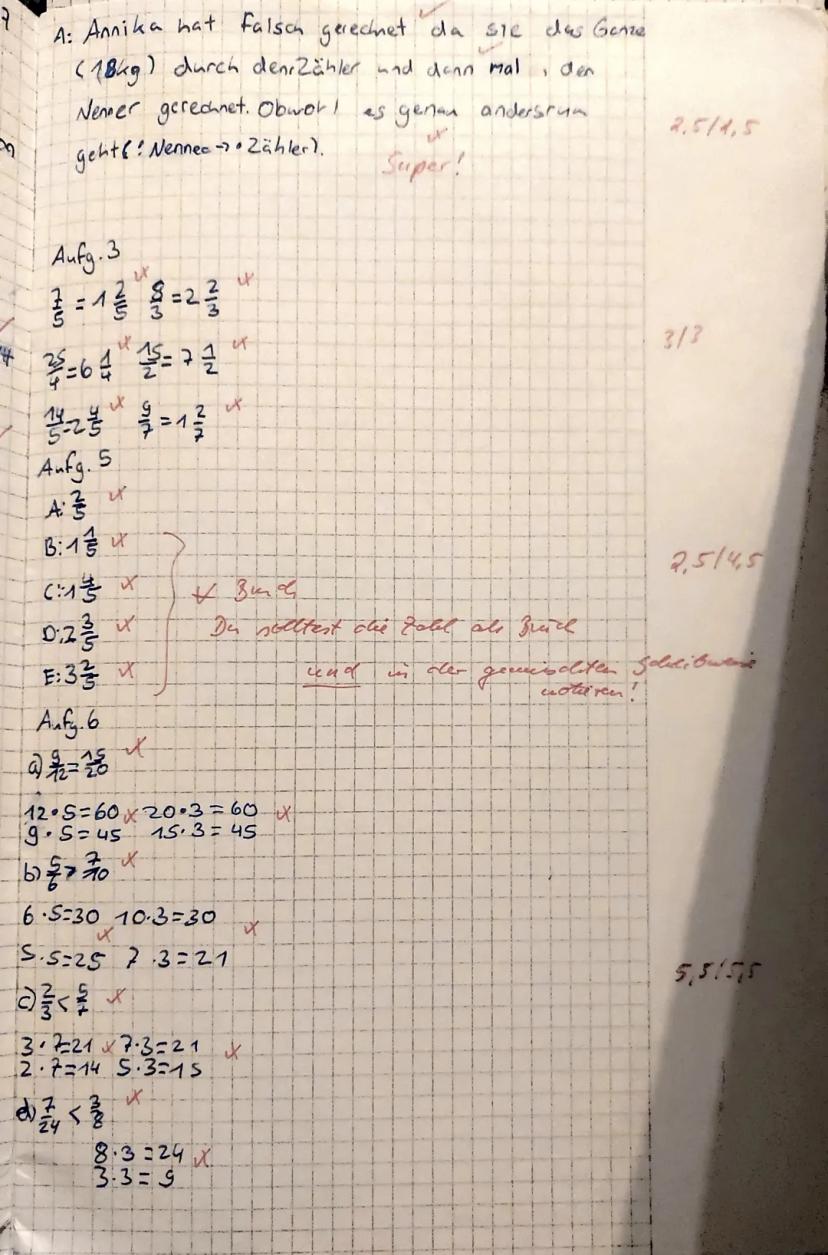 A: Annika hat Falsch gerechnet da sie das Ganze
(18kg) durch den Zähler und dann mal, den
Nenner gerechnet. Obwohl es genau andersrum
geht (: Nenner → • Zähler).
Super!
2,5/2,5
Aufg. 3
7/5 = 1 2/5 8/3 = 2 2/3
25/4 = 6 1/4 15/2 = 7 1/2
14/5 = 2 4/5 9/7 = 1 2/7
3/3
Aufg. 5
A: 2/5
B: 1 1/5
C: 1 4/5
D: 2 3/5
E: 3 2/5
Bruch
Du solltest die Zahl als Bruch
und in der gemischten Schreibweise
notieren!
2,5/4,5
Aufg. 6
a) 9/12 = 15/20
12•5=60 20•3=60
9•5=45 15•3=45
b) 5/6 > 7/10
6•5=30 10•3=30
5•5=25 7•3=21
c) 2/3 < 5/7
3•7=21 7•3=21
2•7=14 5•3=15
d) 7/24 < 3/8
8•3=24
3•3=9
5,5/5,5